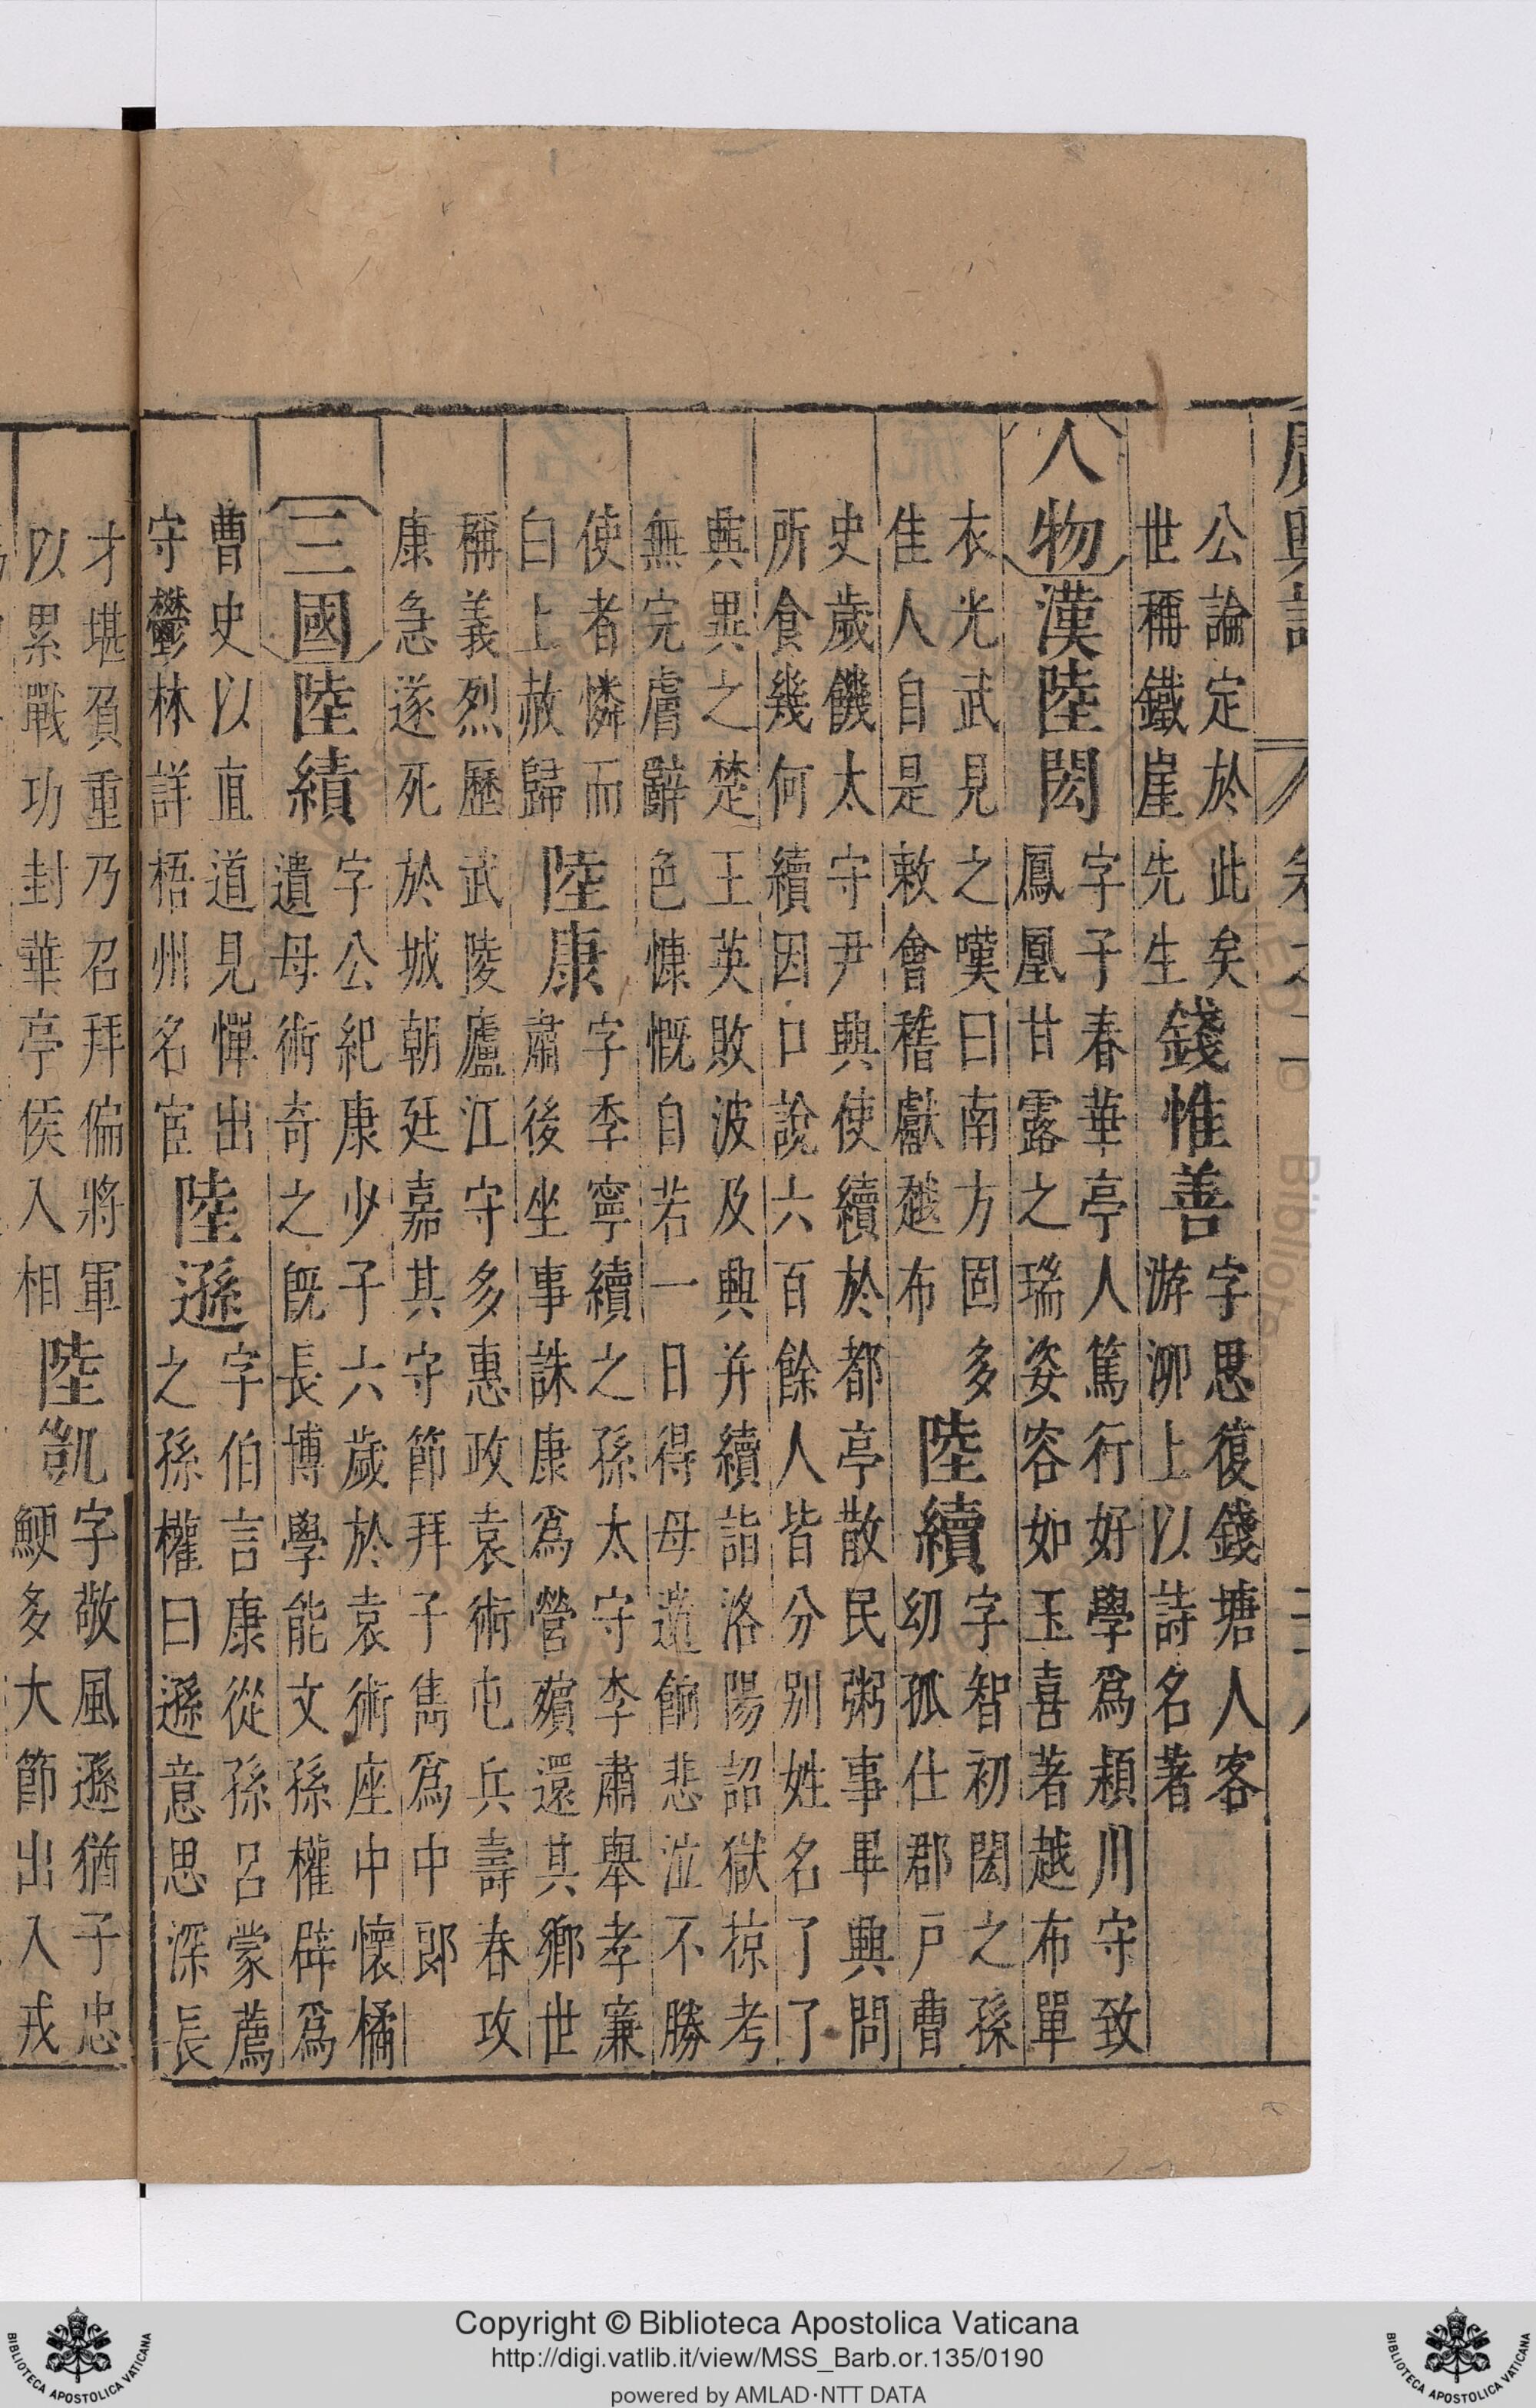 公論定於此矣錢惟善字思復錢塘人客
世稱鐵崖先生游泖上以詩名著
人物漢陸閎字子春華亭人篤行好學爲潁川守致
鳳凰甘露之瑞姿容如玉喜著越布單
衣光武見之嘆曰南方固多陸續字智初閎之孫
佳人自是敕會稽獻越布幼孤仕郡戶曹
史歲饑太守尹興使續於都亭散民粥事畢興問
所食幾何續因口說六百餘人皆分別姓名了了
興異之楚王英敗波及興并續詣洛陽詔獄掠考
無完膚辭色慷慨自若一日得母遺餉悲泣不勝
使者憐而陸康字季寧續之孫太守李肅舉孝廉
白上赦歸肅後坐事誅康爲營殯還其鄉世
稱義烈歷武陵廬江守多惠政袁術屯兵壽春攻
康急遂死於城朝廷嘉其守節拜子儁爲中郎
三國陸績字公紀康少子六歲於袁術座中懷橘
遺母術奇之旣長博學能文孫權辟爲
曹史以直道見憚出陸遜字伯言康從孫呂蒙薦
守鬱林詳梧州名宦之孫權曰遜意思深長
才堪負重乃召拜偏將軍陸凱字敬風遜猶子忠
以累戰功封華亭侯入相鯁多大節出入戎
Copyright © Biblioteca Apostolica Vaticana
http://digi.vatlib.it/view/MSS_Barb.or.135/0190
powered by AMLAD·NTT DATA
BIBLIOTECA APOSTOLICA VATICANA
BIBLIOTECA APOSTOLICA VATICANA